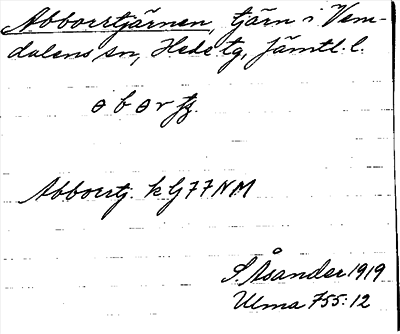 Abborrtjärnen, tjärn i Vem-
dalens sn, Hede tg, Jämtl. l.
Abborrtj. k G77NM
S. Åsander 1919
Ulma 755:12